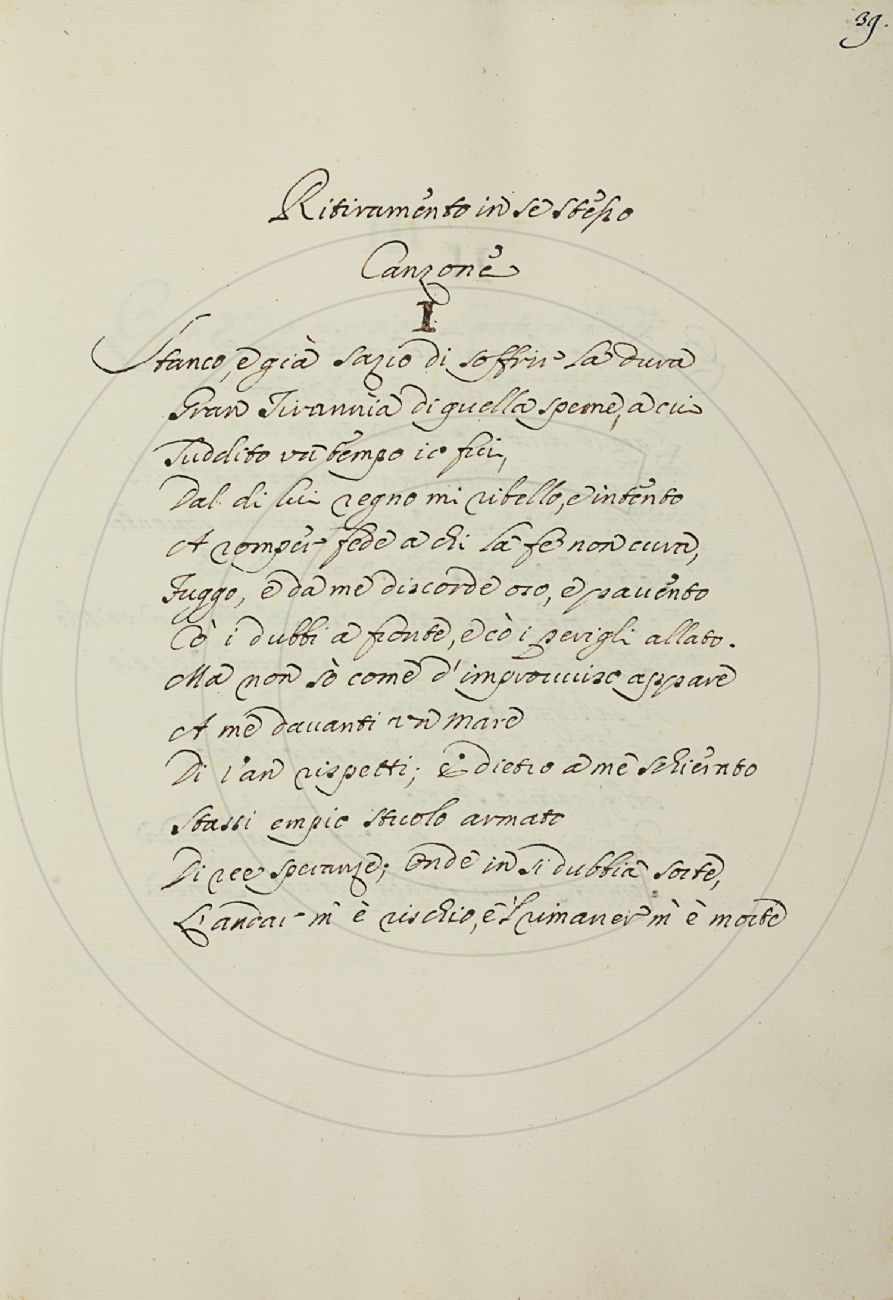 39.
Ritiramento in se stesso
Canzone
I
Stanco, e già sazio di soffrir la dura
Gran Tirannia di quella speme, a cui
Suddito un tempo io fui,
Dal di lui regno mi ribello, e intento
A romper fede a chi la fe non cura,
Fuggo, e da me discorde oso, e pavento
Cò i dubbi a fronte, e cò i perigli allato.
Ma non sò come d'improvviso appare
A me davanti un mare
Di van rispetti; e dietro a me schierato
Stassi empio stuolo armato
Di ree speranze; onde in sì dubbia sorte,
L'andar m'è rischio, e 'l rimaner m'è morte